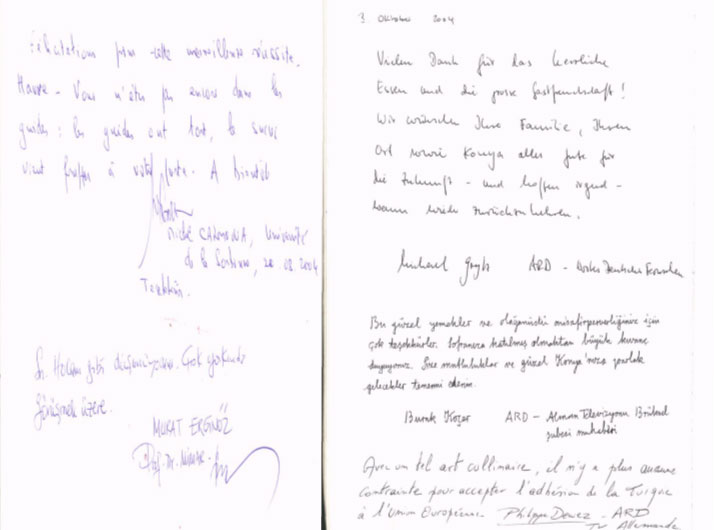 Félicitations pour cette merveilleuse réussite.
Vous n'êtes pas encore dans les
guides : les guides ont tort, le
vient frapper à votre porte. A bientôt
CARMONA, Université
de la Sorbonne, 28 08 2004
Teşekkürler.
düşünüyorum. Çok yakında
Görüşmek üzere.
MURAT ERGİNÖZ
Prof. Dr. Mimar
3. Oktober 2004
Vielen Dank für das herrliche
Essen und die grosse Gastfreundschaft!
Wir wünschen Ihrer Familie, Ihrem
Ort sowie Konya alles Gute für
die Zukunft - und hoffen irgend-
wann wieder zurückzukehren.
Michael ARD - Erstes Deutsches Fernsehen
Bu güzel yemekler ve olağanüstü misafirperverliğiniz için
çok teşekkürler. Sofranıza katılmış olmaktan büyük kıvanç
duyuyoruz. Size mutluluklar ve güzel Konya'nıza parlak
gelecekler temenni ederim.
Burak Koçer ARD - Alman Televizyonu Brüksel
şubesi muhabiri
Avec un tel art collinaire, il n'y a plus aucune
contrainte pour accepter l'adhésion de la Turquie
à l'Union Européenne. Philippe Dewez - ARD
TV Allemande